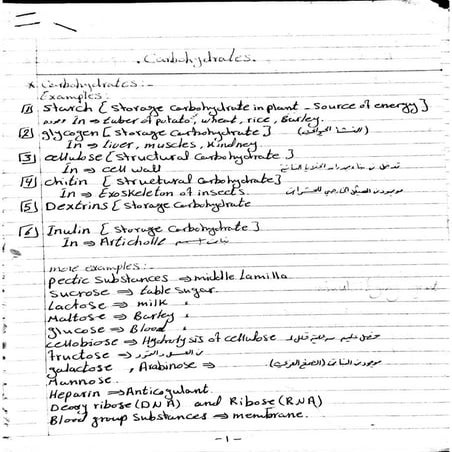 Carbohydrates.
* Carbohydrates:-
Examples:
[1] Starch [Storage Carbohydrate in plant - Source of energy]
In ⇒ tuber of potato, wheat, rice, Barley.
[2] glycogen [Storage Carbohydrate]
In ⇒ Liver, muscles, Kindney
[3] cellulose [Structural Carbohydrate]
In ⇒ cell wall
[4] chitin [Structural Carbohydrate]
In ⇒ Exoskeleton of insects.
[5] Dextrins [Storage Carbohydrate
[6] Inulin [Storage Carbohydrate]
In ⇒ Articholle
more examples:
Pectic Substances ⇒ middle Lamilla
Sucrose ⇒ table Sugar.
Lactose ⇒ milk
Maltose ⇒ Barley
glucose ⇒ Blood
cellobiose ⇒ Hydrolysis of cellulose
fructose ⇒
galactose, Arabinose ⇒
Mannose.
Heparin ⇒ Anticogulant.
Deoxy ribose (DNA) and Ribose (RNA)
Blood group Substances ⇒ membrane.
-1-